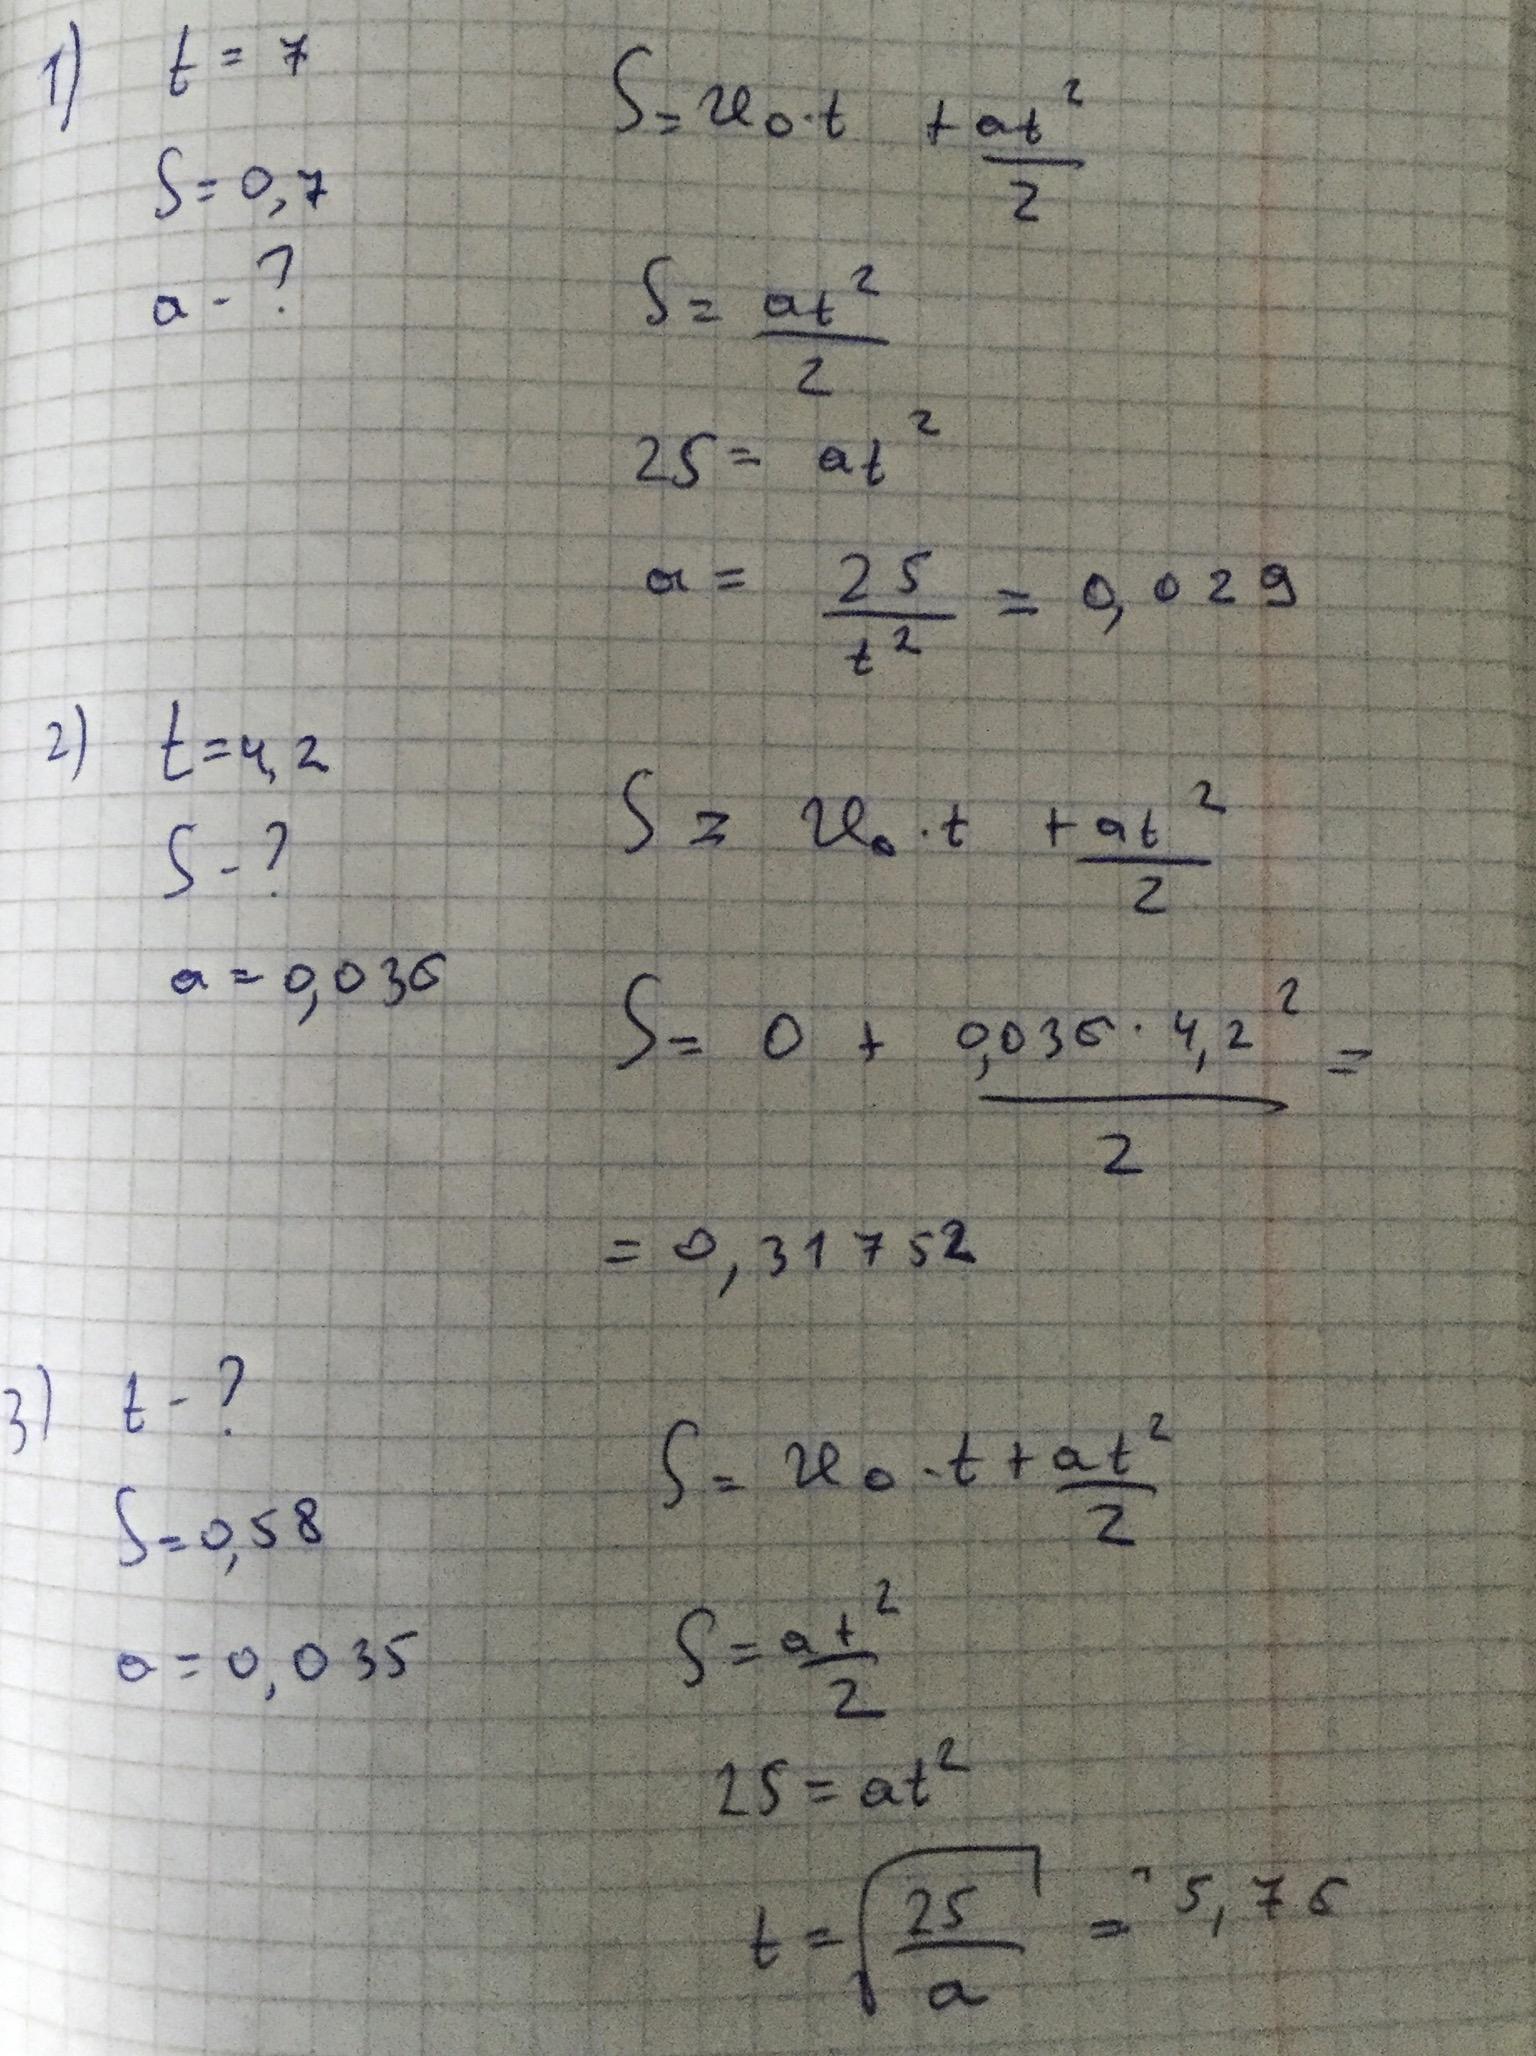 1) t = 7
S = 0,7
a - ?
S = v₀·t + at²/2
S = at²/2
2S = at²
a = 2S/t² = 0,029
2) t = 4,2
S - ?
a = 0,036
S = v₀·t + at²/2
S = 0 + 0,036·4,2²/2 =
= 0,31752
3) t - ?
S = 0,58
a = 0,035
S = v₀·t + at²/2
S = at²/2
2S = at²
t = √(2S/a) = 5,76